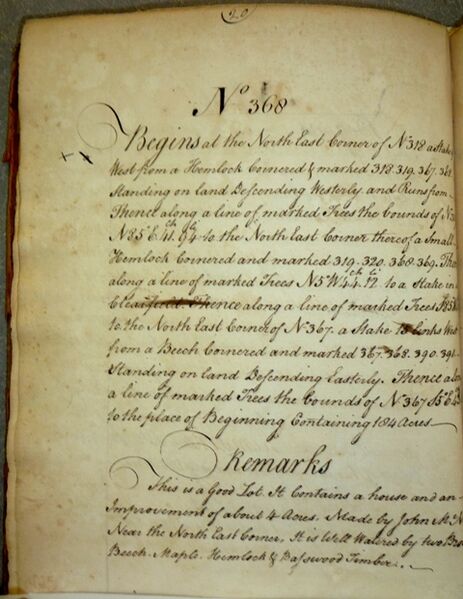 20
No 368
Begins at the North East Corner of No 318 a Stake
West from a Hemlock Cornered & marked 318. 319. 367. 368.
Standing on land Descending Westerly and Runs from
Thence along a line of marked Trees the bounds of No
N 85° E 41 ch 94 to the North East Corner thereof a Small
Hemlock Cornered and marked 319. 320. 368. 369. The
along a line of marked Trees N 5° W 44 ch 12 li to a Stake in
Thence along a line of marked Trees S 85
to the North East Corner of No 367. a Stake 18 links West
from a Beech Cornered and marked 367. 368. 390. 391.
Standing on land Descending Easterly. Thence a
a line of marked Trees the bounds of No 367 S 5° E
to the place of Beginning Containing 184 Acres
Remarks
This is a Good Lot. It Contains a house and an
Improvement of about 4 Acres. Made by John Mc
Near the North East Corner, It is Well Watered by two
Beech. Maple. Hemlock & Basswood Timber.